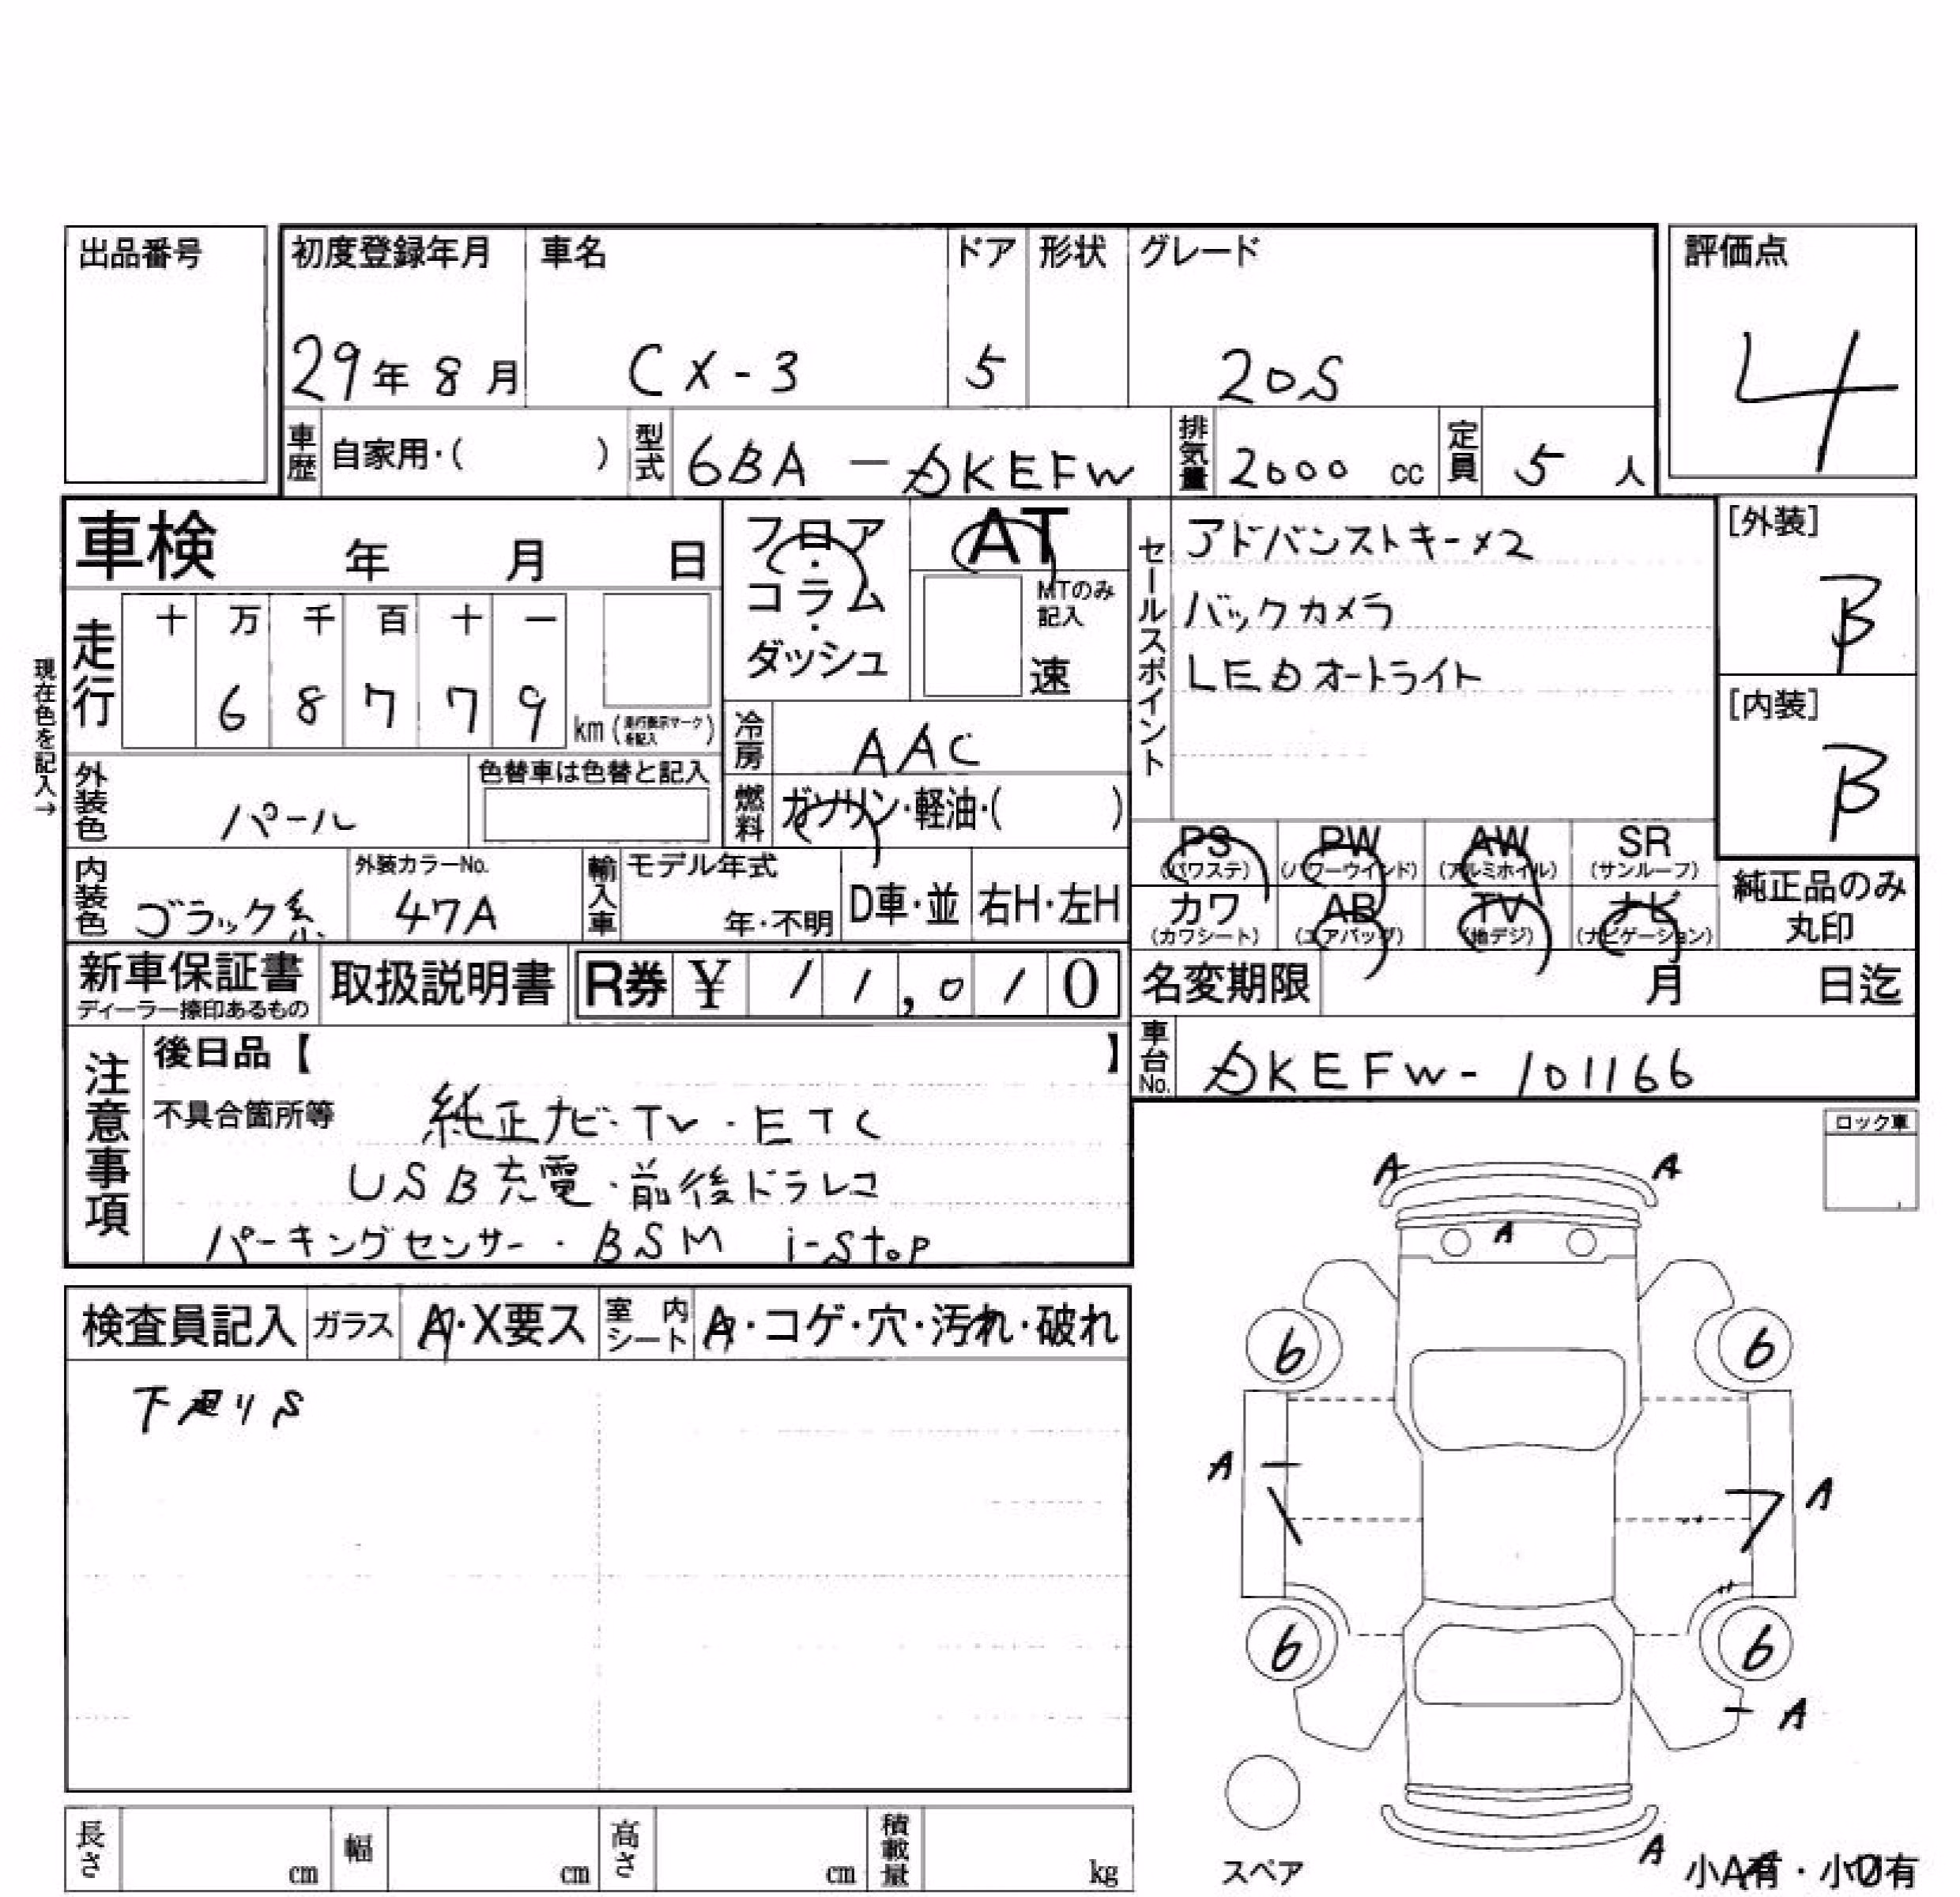 出品番号
初度登録年月 車名 ドア 形状 グレード 評価点
29年 8月 CX-3 5 20S 4
車歴 自家用・( ) 型式 6BA-DKEFW 排気量 2000 cc 定員 5 人
車検 年 月 日
フロア・コラム・ダッシュ
AT
MTのみ記入
速
セールスポイント
アドバンストキー×2
バックカメラ
LEDオートライト
[外装]
B
[内装]
B
現在色を記入→
走行
十 万 千 百 十 一
6 8 7 7 9
km(走行表示マークを記入)
冷房 AAC
燃料 ガソリン・軽油・( )
外装色 パール
色替車は色替と記入
PS PW AW SR
(パワステ) (パワーウインド) (アルミホイル) (サンルーフ)
カワ AB TV ナビ
(カワシート) (エアバッグ) (地デジ) (ナビゲーション)
純正品のみ
丸印
内装色 ブラック系
外装カラーNo.
47A
輸入車 モデル年式
年・不明 D車・並 右H・左H
新車保証書
ディーラー捺印あるもの
取扱説明書
R券 ¥ 11,010
名変期限 月 日迄
車台No. DKEFW-101166
注意事項
後日品【 】
不具合箇所等 純正ナビ・TV・ETC
USB充電・前後ドラレコ
パーキングセンサー・BSM i-stop
ロック車
A A
A
6 6
A A
6 6
A
A
検査員記入 ガラス A・X要ス 室内シート A・コゲ・穴・汚れ・破れ
下廻りS
長さ cm 幅 cm 高さ cm 積載量 kg
スペア
小A有・小U有